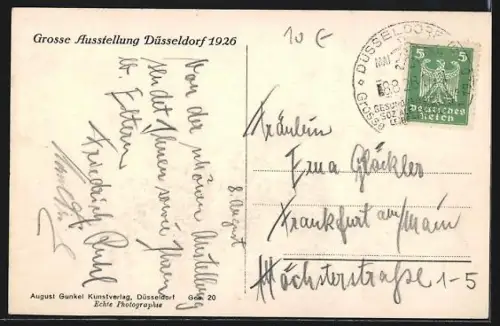 Grosse Ausstellung Düsseldorf 1926
10 €
DÜSSELDORF
8.8.
GESUND
GROSSE
5 5
Deutsches
Reich
8. August
Von der schönen Ausstellung
sendet Ihnen sowie Ihren
w. Eltern
Friedrich
Fräulein
Erna Glöckler
Frankfurt am/Main
Höchsterstraße 1-5
August Gunkel Kunstverlag, Düsseldorf Ges. 20
Echte Photographie